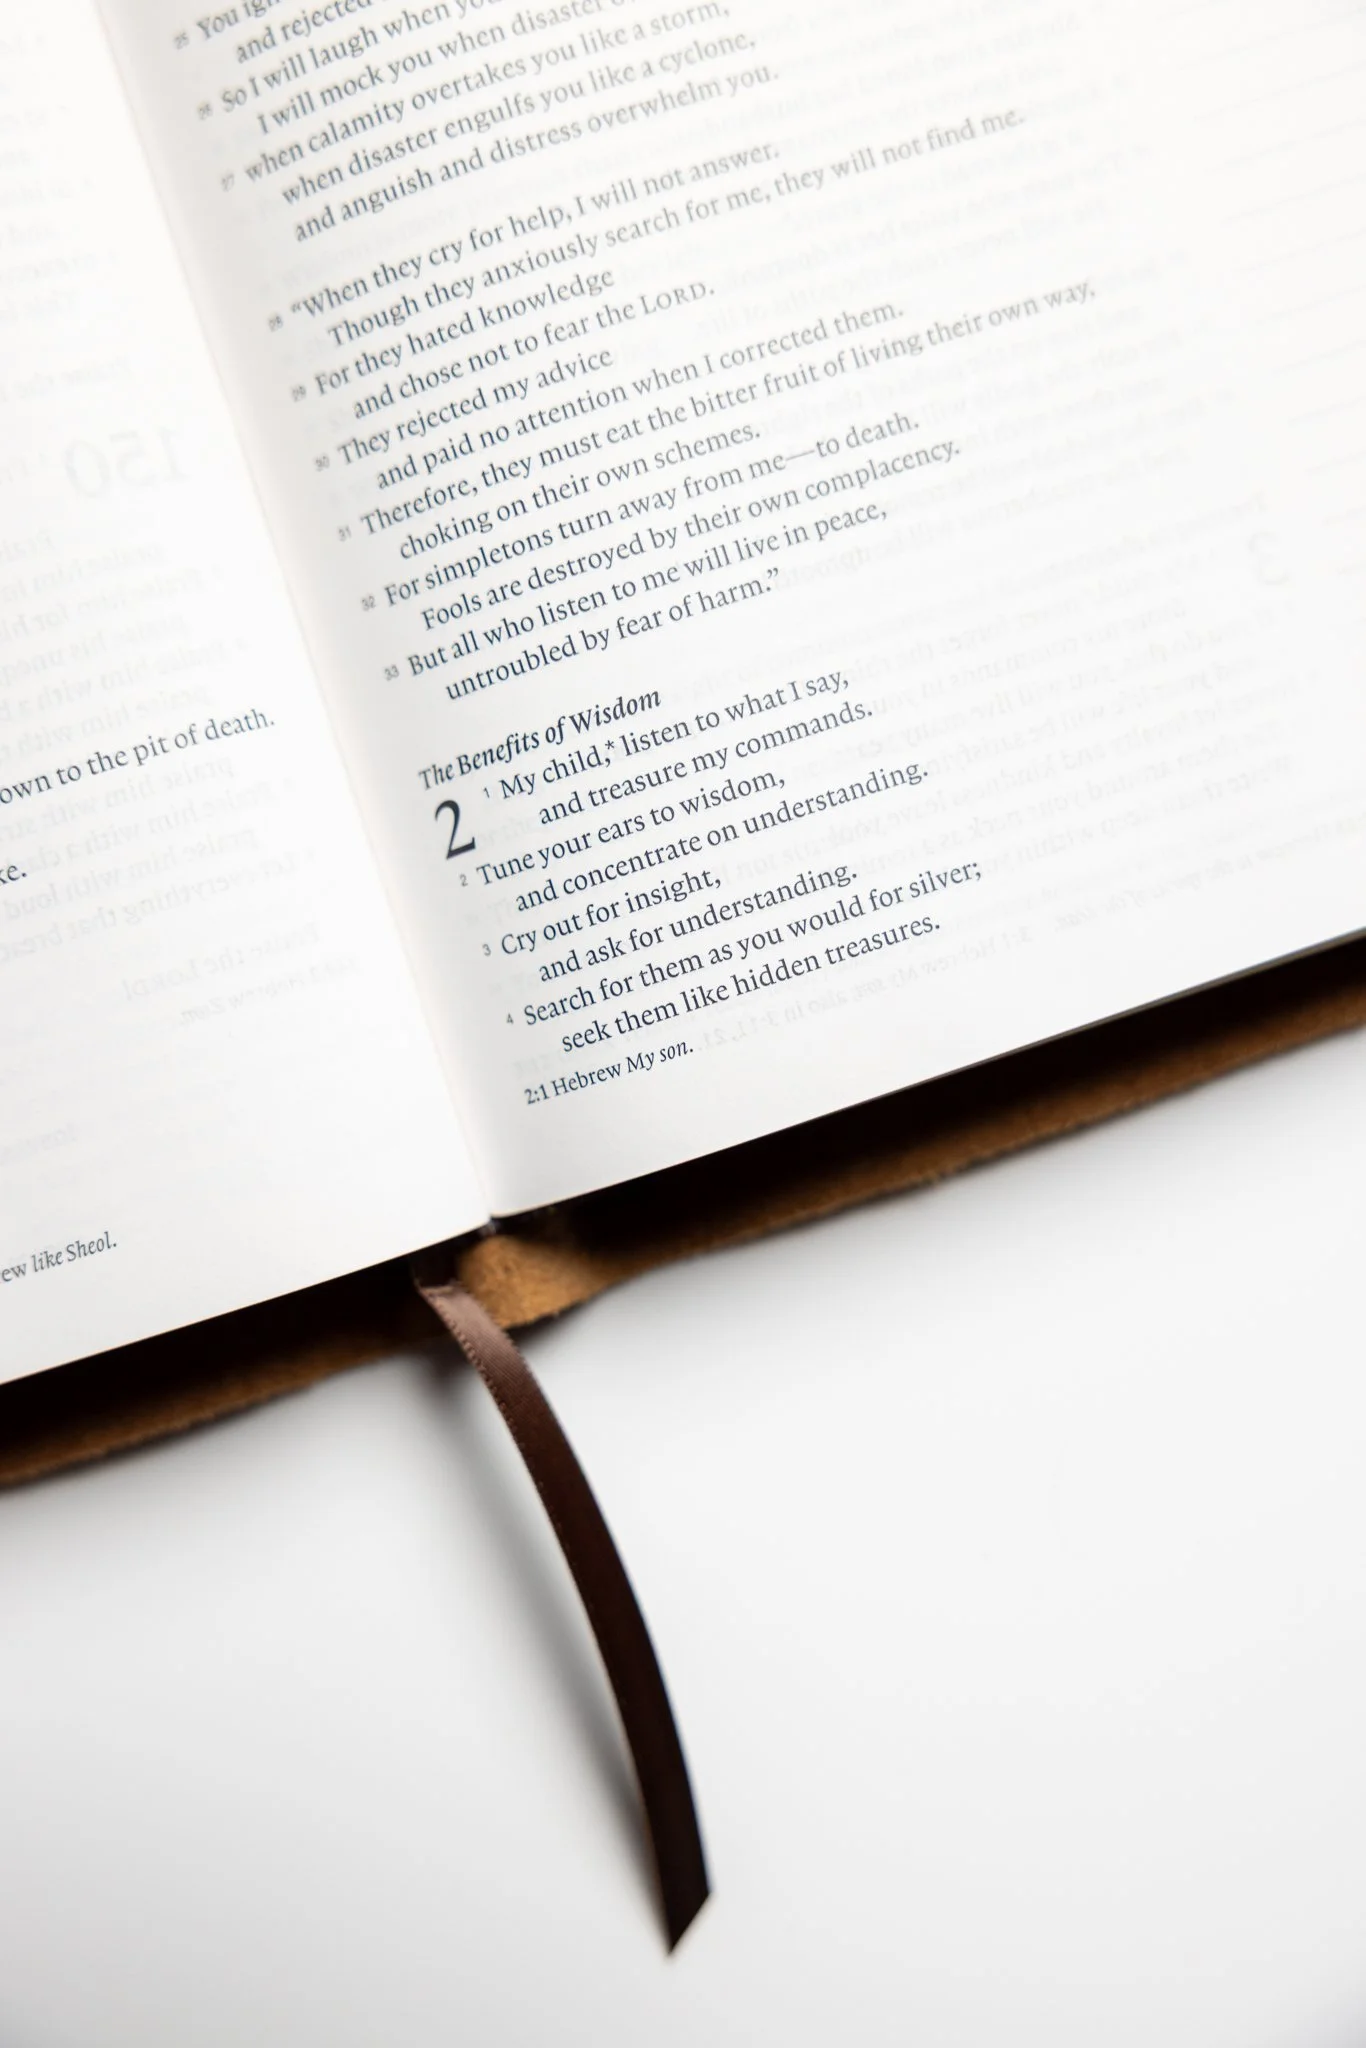 own to the pit of death.
ke.
ew like Sheol.
25 You
and rejected
26 So I will laugh when you
I will mock you when disaster
27 when calamity overtakes you like a storm,
when disaster engulfs you like a cyclone,
and anguish and distress overwhelm you.
28 “When they cry for help, I will not answer.
Though they anxiously search for me, they will not find me.
29 For they hated knowledge
and chose not to fear the LORD.
30 They rejected my advice
and paid no attention when I corrected them.
31 Therefore, they must eat the bitter fruit of living their own way,
choking on their own schemes.
32 For simpletons turn away from me—to death.
Fools are destroyed by their own complacency.
33 But all who listen to me will live in peace,
untroubled by fear of harm.”
The Benefits of Wisdom
2 1 My child,* listen to what I say,
and treasure my commands.
2 Tune your ears to wisdom,
and concentrate on understanding.
3 Cry out for insight,
and ask for understanding.
4 Search for them as you would for silver;
seek them like hidden treasures.
2:1 Hebrew My son.